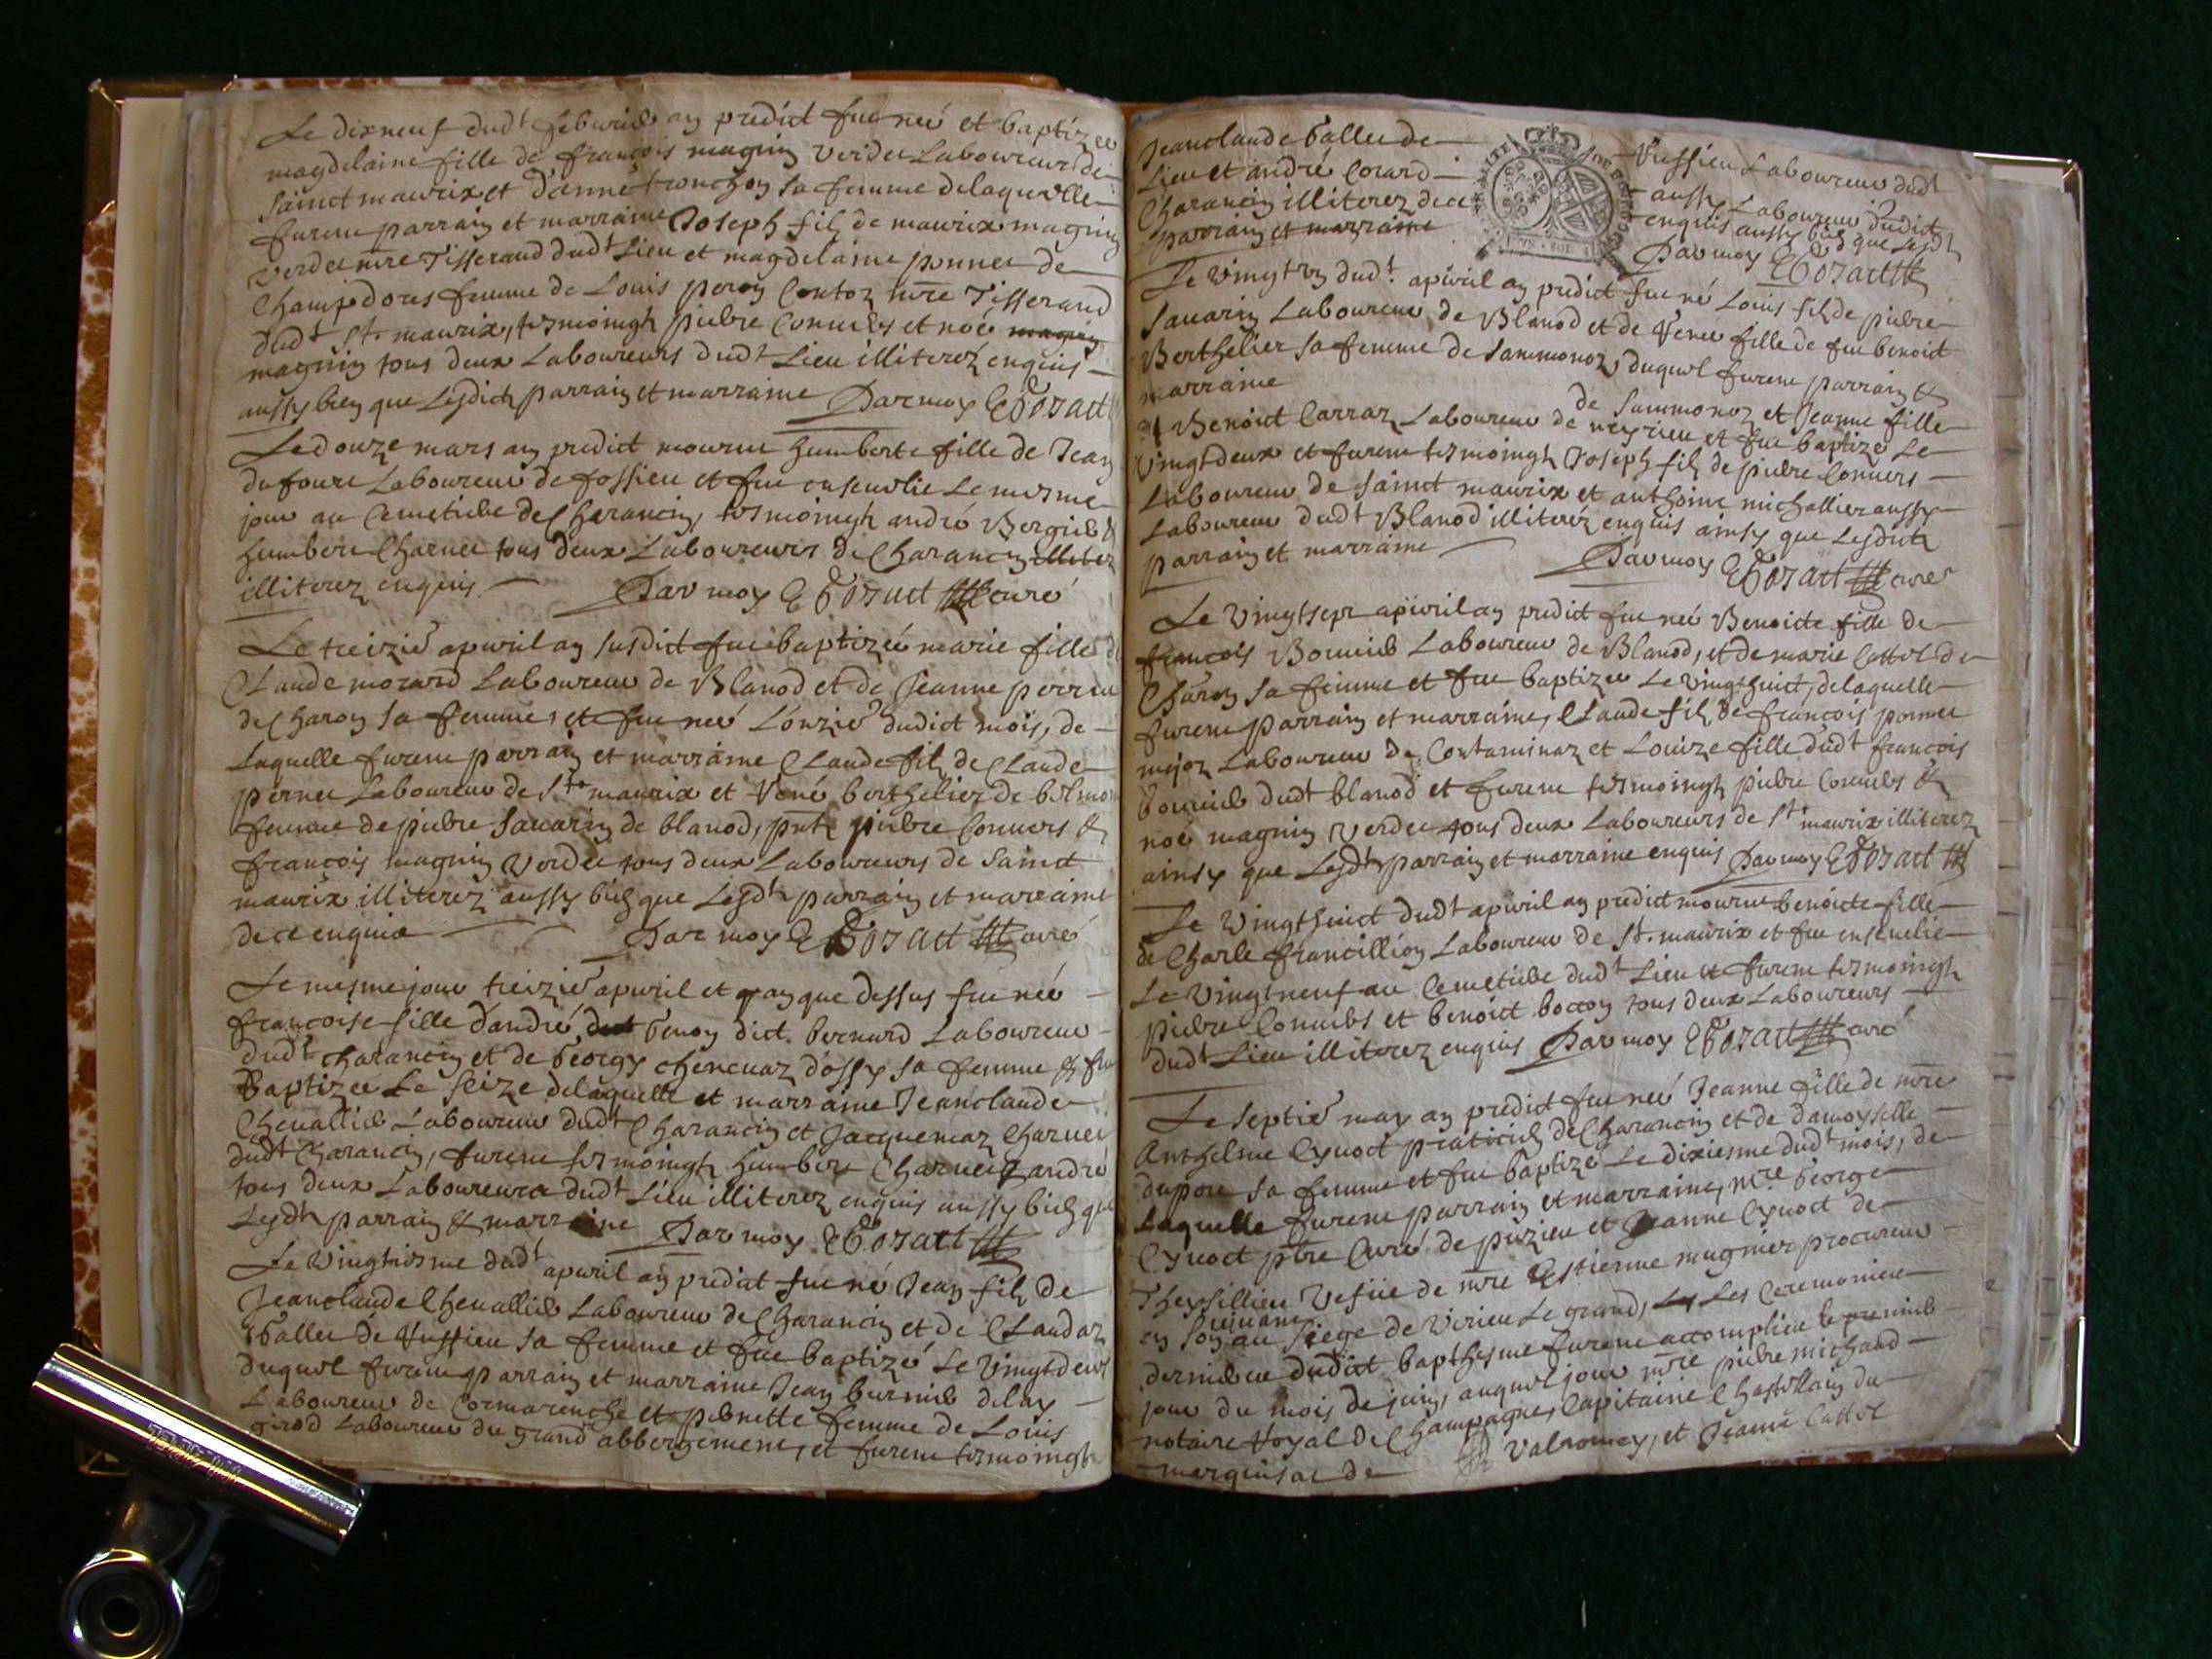 Le dixneuf dudt febvrier an predict fut neé et baptizee
magdelaine fille de françois magnin verdet Laboureur de
sainct maurix et d'anne tronchon sa femme delaquelle
furent parrain et marraine Joseph filz de maurix magnin
verdet mre Tisserand dudt Lieu et magdelaine ponnet de
Champdores femme de Louis peron Contoz mre Tisserand
dudt St. maurix, tesmoingh pierre Convers et noé magnin
magnin tous deux Laboureurs dudt Lieu illiterez enquis
aussy bien que Lesdich parrain et marraine Par moy
Le douze mars an predict mourut humberte fille de Jean
dufour Laboureur de fossieu et fut ensevelie Le mesme
jour au Cemetiere de Charancin, tesmoingh andré Bergier &
humbert Charvet tous deux Laboureurs de Charancin illiter
illiterez enquis. Par moy curé
Le treizie apvril an susdict fut baptizeé marie fille de
Claude morard Laboureur de Blanod et de Jeanne perret
de Charon sa femme, et fut neé L'onzie dudict mois, de
Laquelle furent parrain et marraine Claude filz de Claude
pernet Laboureur de St. maurix et Vené berthelier de
femme de pierre savarin de blanod, pntz pierre Convers &
françois magnin Verdet tous deux Laboureurs de sainct
maurix illiterez aussy bien que Lesdh parrain et marraine
de ce enquis Par moy curé
Le mesme jour treizie apvril et an que dessus fut neé
françoise fille d'andré dudt genon dict bernard Laboureur
dudt Charancin et de Georgy chenevaz d'ossy sa femme & fut
Baptizeé Le seize delaquelle et marraine Jeanclaude
Chevallier Laboureur dudt Charancin et Jacquemaz Charvet
dudt Charancin, furent tesmoingh humbert Charvet & andré
tous deux Laboureurs dudt Lieu illiterez enquis aussy bien que
Lesdh parrain & marraine Par moy
Le vingtiesme dudt apvril an predict fut né Jean filz de
Jeanclaude Chevallier Laboureur de Charancin et de Claudaz
Gallet de Vussieu sa femme et fut baptizé Le vingtdeux
duquel furent parrain et marraine Jean burnier
Laboureur de Cormarenche et pernette femme de Louis
girod Laboureur du grand abbergement, et furent tesmoingh
Jeanclaude Gallet de Vussieu Laboureur dudt
Lieu et andré Corard aussy Laboureur dudict
Charancin illiterez de ce enquis aussy bien que Lesdh
parrain et marraine Par moy
Le vingt un dudt. apvril an predict fut né Louis filz de pierre
Savarin Laboureur de Blanod et de Vene fille de feu benoit
Berthelier sa femme de Sammonoz, duquel furent parrain &
marraine
Benoict Carraz Laboureur de de Sammonoz et Jeanne fille
neyrieu et fut baptizé Le
vingtdeux et furent tesmoingh Joseph filz de pierre Convers
Laboureur de sainct maurix et anthoine michallier aussy
Laboureur dudt Blanod illiterez enquis ainsy que Lesdich
parrain et marraine Par moy curé
Le vingtsept apvril an predict fut neé Benoicte fille de
françois Bouvier Laboureur de Blanod, et de marie Cattel de
Charon sa femme et fut baptizeé Le vingthuict, delaquelle
furent parrain et marraine, Claude filz de françois ponnet
mejoz Laboureur de Contaminaz et Louize fille dudt françois
Bouvier dudt blanod et furent tesmoingh pierre Convers &
noé magnin Verdet tous deux Laboureurs de St. maurix illiterez
ainsy que Lesdh parrain et marraine enquis Par moy
Le vingthuict dudt apvril an predict mourut benoicte fille
de Charle francillion Laboureur de St. maurix et fut ensevelie
Le vingtneuf au Cemetiere dudt Lieu et furent tesmoingh
pierre Convers et benoict boccon tous deux Laboureurs
dudt Lieu illiterez enquis Par moy curé
Le septie may an predict fut neé Jeanne fille de mre
Anthelme Cynoct praticien de Charancin et de damoyselle
duport sa femme et fut baptizé Le dixiesme dudt mois, de
Laquelle furent parrain et marraine, mre George
Cynoct pbre Curé de puzieu et Jeanne Cynoct de
Theysillieu Vefue de mre Estienne mugnier procureur
en son vivant au siege de Virieu Le grand, Les Ceremonies
dernieres dudict bapthesme furent accomplies le premier
jour du mois de juin, auquel jour mre pierre michaud
notaire Royal de Champagne, Capitaine Chastelain du
marquisat de Valromey, et Jeanne Cattel